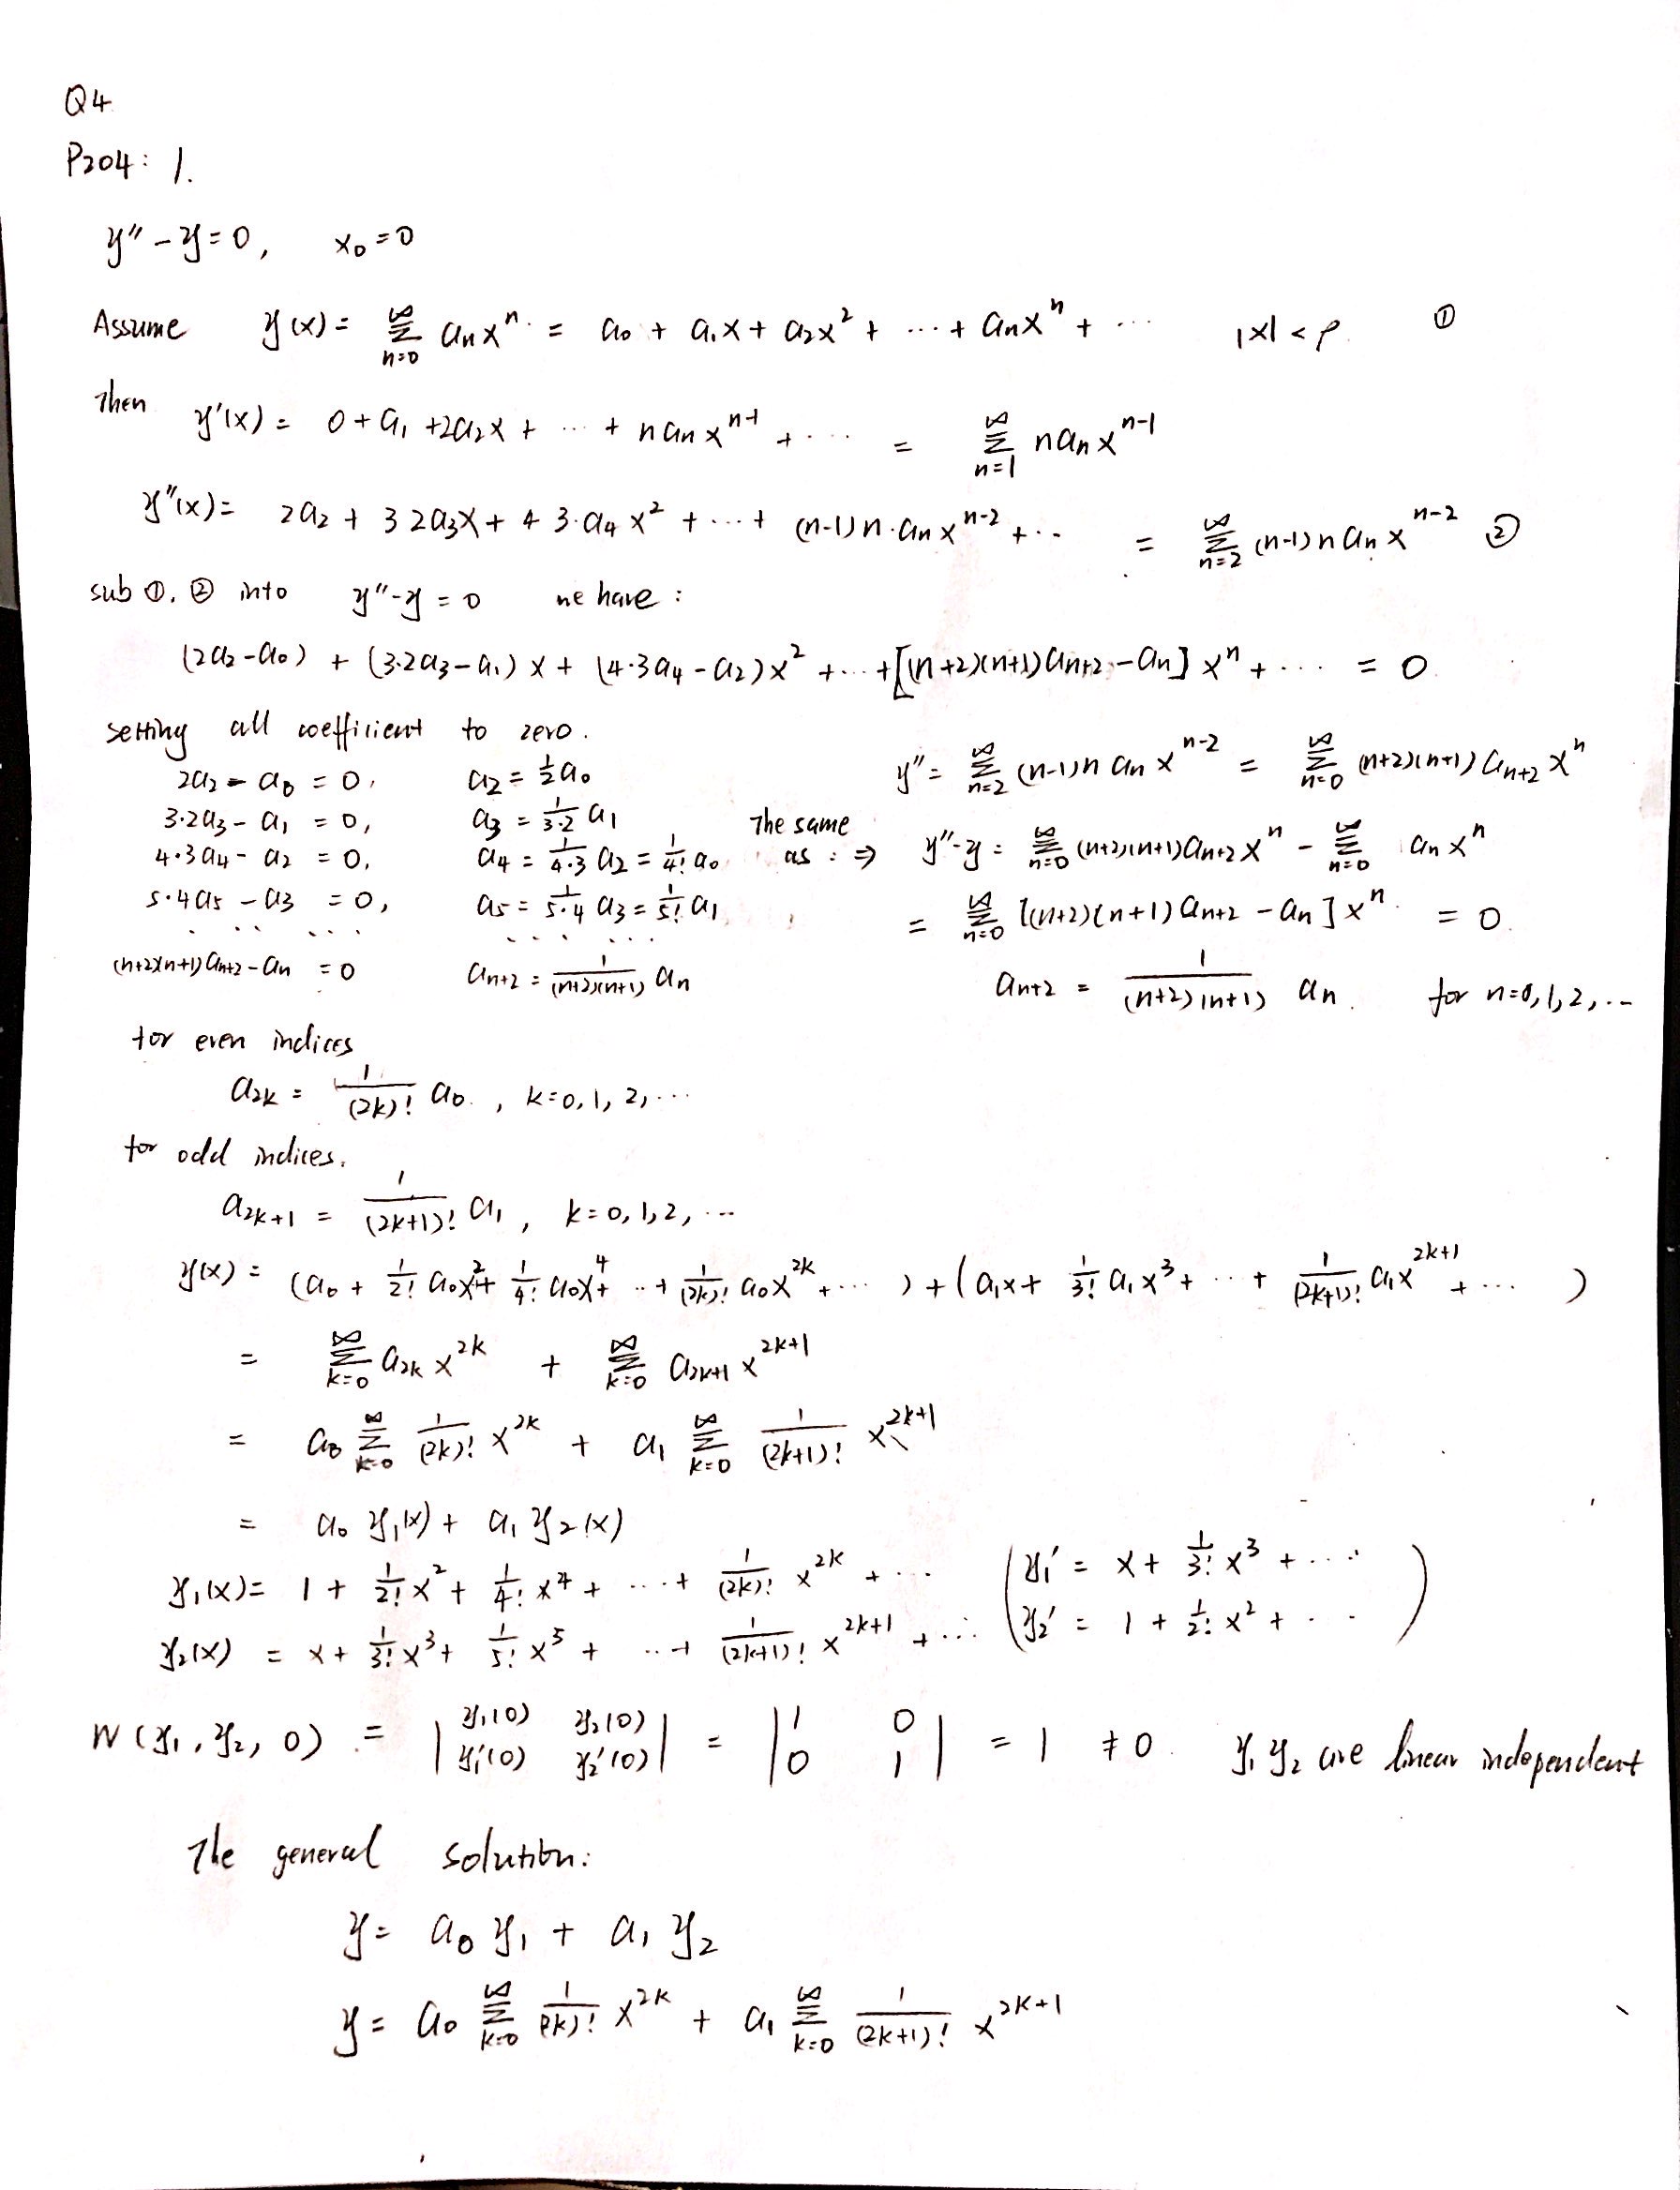 Q4
P204: 1.
y'' - y = 0, x₀ = 0
Assume y(x) = ∑_{n=0}^{∞} aₙxⁿ = a₀ + a₁x + a₂x² + ... + aₙxⁿ + ... |x| < ρ. ①
Then y'(x) = 0 + a₁ + 2a₂x + ... + naₙxⁿ⁻¹ + ... = ∑_{n=1}^{∞} naₙxⁿ⁻¹
y''(x) = 2a₂ + 3·2a₃x + 4·3·a₄x² + ... + (n-1)n·aₙxⁿ⁻² + ... = ∑_{n=2}^{∞} (n-1)naₙxⁿ⁻² ②
sub ①, ② into y''-y = 0 we have :
(2a₂-a₀) + (3·2a₃-a₁)x + (4·3a₄-a₂)x² + ... + [(n+2)(n+1)aₙ₊₂-aₙ]xⁿ + ... = 0.
setting all coefficient to zero.
2a₂ - a₀ = 0, a₂ = 1/2 a₀
3·2a₃ - a₁ = 0, a₃ = 1/(3·2) a₁
4·3a₄ - a₂ = 0, a₄ = 1/(4·3) a₂ = 1/4! a₀
5·4a₅ - a₃ = 0, a₅ = 1/(5·4) a₃ = 1/5! a₁
... ...
(n+2)(n+1)aₙ₊₂-aₙ = 0 aₙ₊₂ = 1/((n+2)(n+1)) aₙ
The same
as : ⇒
y'' = ∑_{n=2}^{∞} (n-1)n aₙxⁿ⁻² = ∑_{n=0}^{∞} (n+2)(n+1)aₙ₊₂xⁿ
y''-y = ∑_{n=0}^{∞} (n+2)(n+1)aₙ₊₂xⁿ - ∑_{n=0}^{∞} aₙxⁿ
= ∑_{n=0}^{∞} [(n+2)(n+1)aₙ₊₂ - aₙ]xⁿ = 0.
aₙ₊₂ = 1/((n+2)(n+1)) aₙ. for n=0,1,2,...
for even indices
a₂ₖ = 1/(2k)! a₀, k=0,1,2,...
for odd indices.
a₂ₖ₊₁ = 1/(2k+1)! a₁, k=0,1,2,...
y(x) = (a₀ + 1/2! a₀x² + 1/4! a₀x⁴ + ... + 1/(2k)! a₀x²ᵏ + ...) + (a₁x + 1/3! a₁x³ + ... + 1/(2k+1)! a₁x²ᵏ⁺¹ + ...)
= ∑_{k=0}^{∞} a₂ₖx²ᵏ + ∑_{k=0}^{∞} a₂ₖ₊₁x²ᵏ⁺¹
= a₀ ∑_{k=0}^{∞} 1/(2k)! x²ᵏ + a₁ ∑_{k=0}^{∞} 1/(2k+1)! x²ᵏ⁺¹
= a₀y₁(x) + a₁y₂(x)
y₁(x) = 1 + 1/2! x² + 1/4! x⁴ + ... + 1/(2k)! x²ᵏ + ... (y₁' = x + 1/3! x³ + ...
y₂(x) = x + 1/3! x³ + 1/5! x⁵ + ... + 1/(2k+1)! x²ᵏ⁺¹ + ... y₂' = 1 + 1/2! x² + ...)
W(y₁, y₂, 0) = |y₁(0) y₂(0); y₁'(0) y₂'(0)| = |1 0; 0 1| = 1 ≠ 0. y₁ y₂ are linear independent
The general solution:
y = a₀y₁ + a₁y₂
y = a₀ ∑_{k=0}^{∞} 1/(2k)! x²ᵏ + a₁ ∑_{k=0}^{∞} 1/(2k+1)! x²ᵏ⁺¹